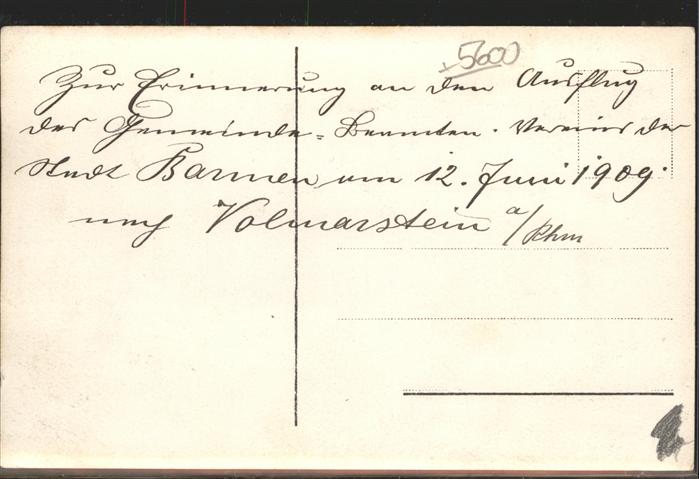 5600
Zur Erinnerung an den Ausflug
des Gemeinde-Beamten-Vereins der
Stadt Barmen am 12. Juni 1909.
nach Volmarstein a/Rhm